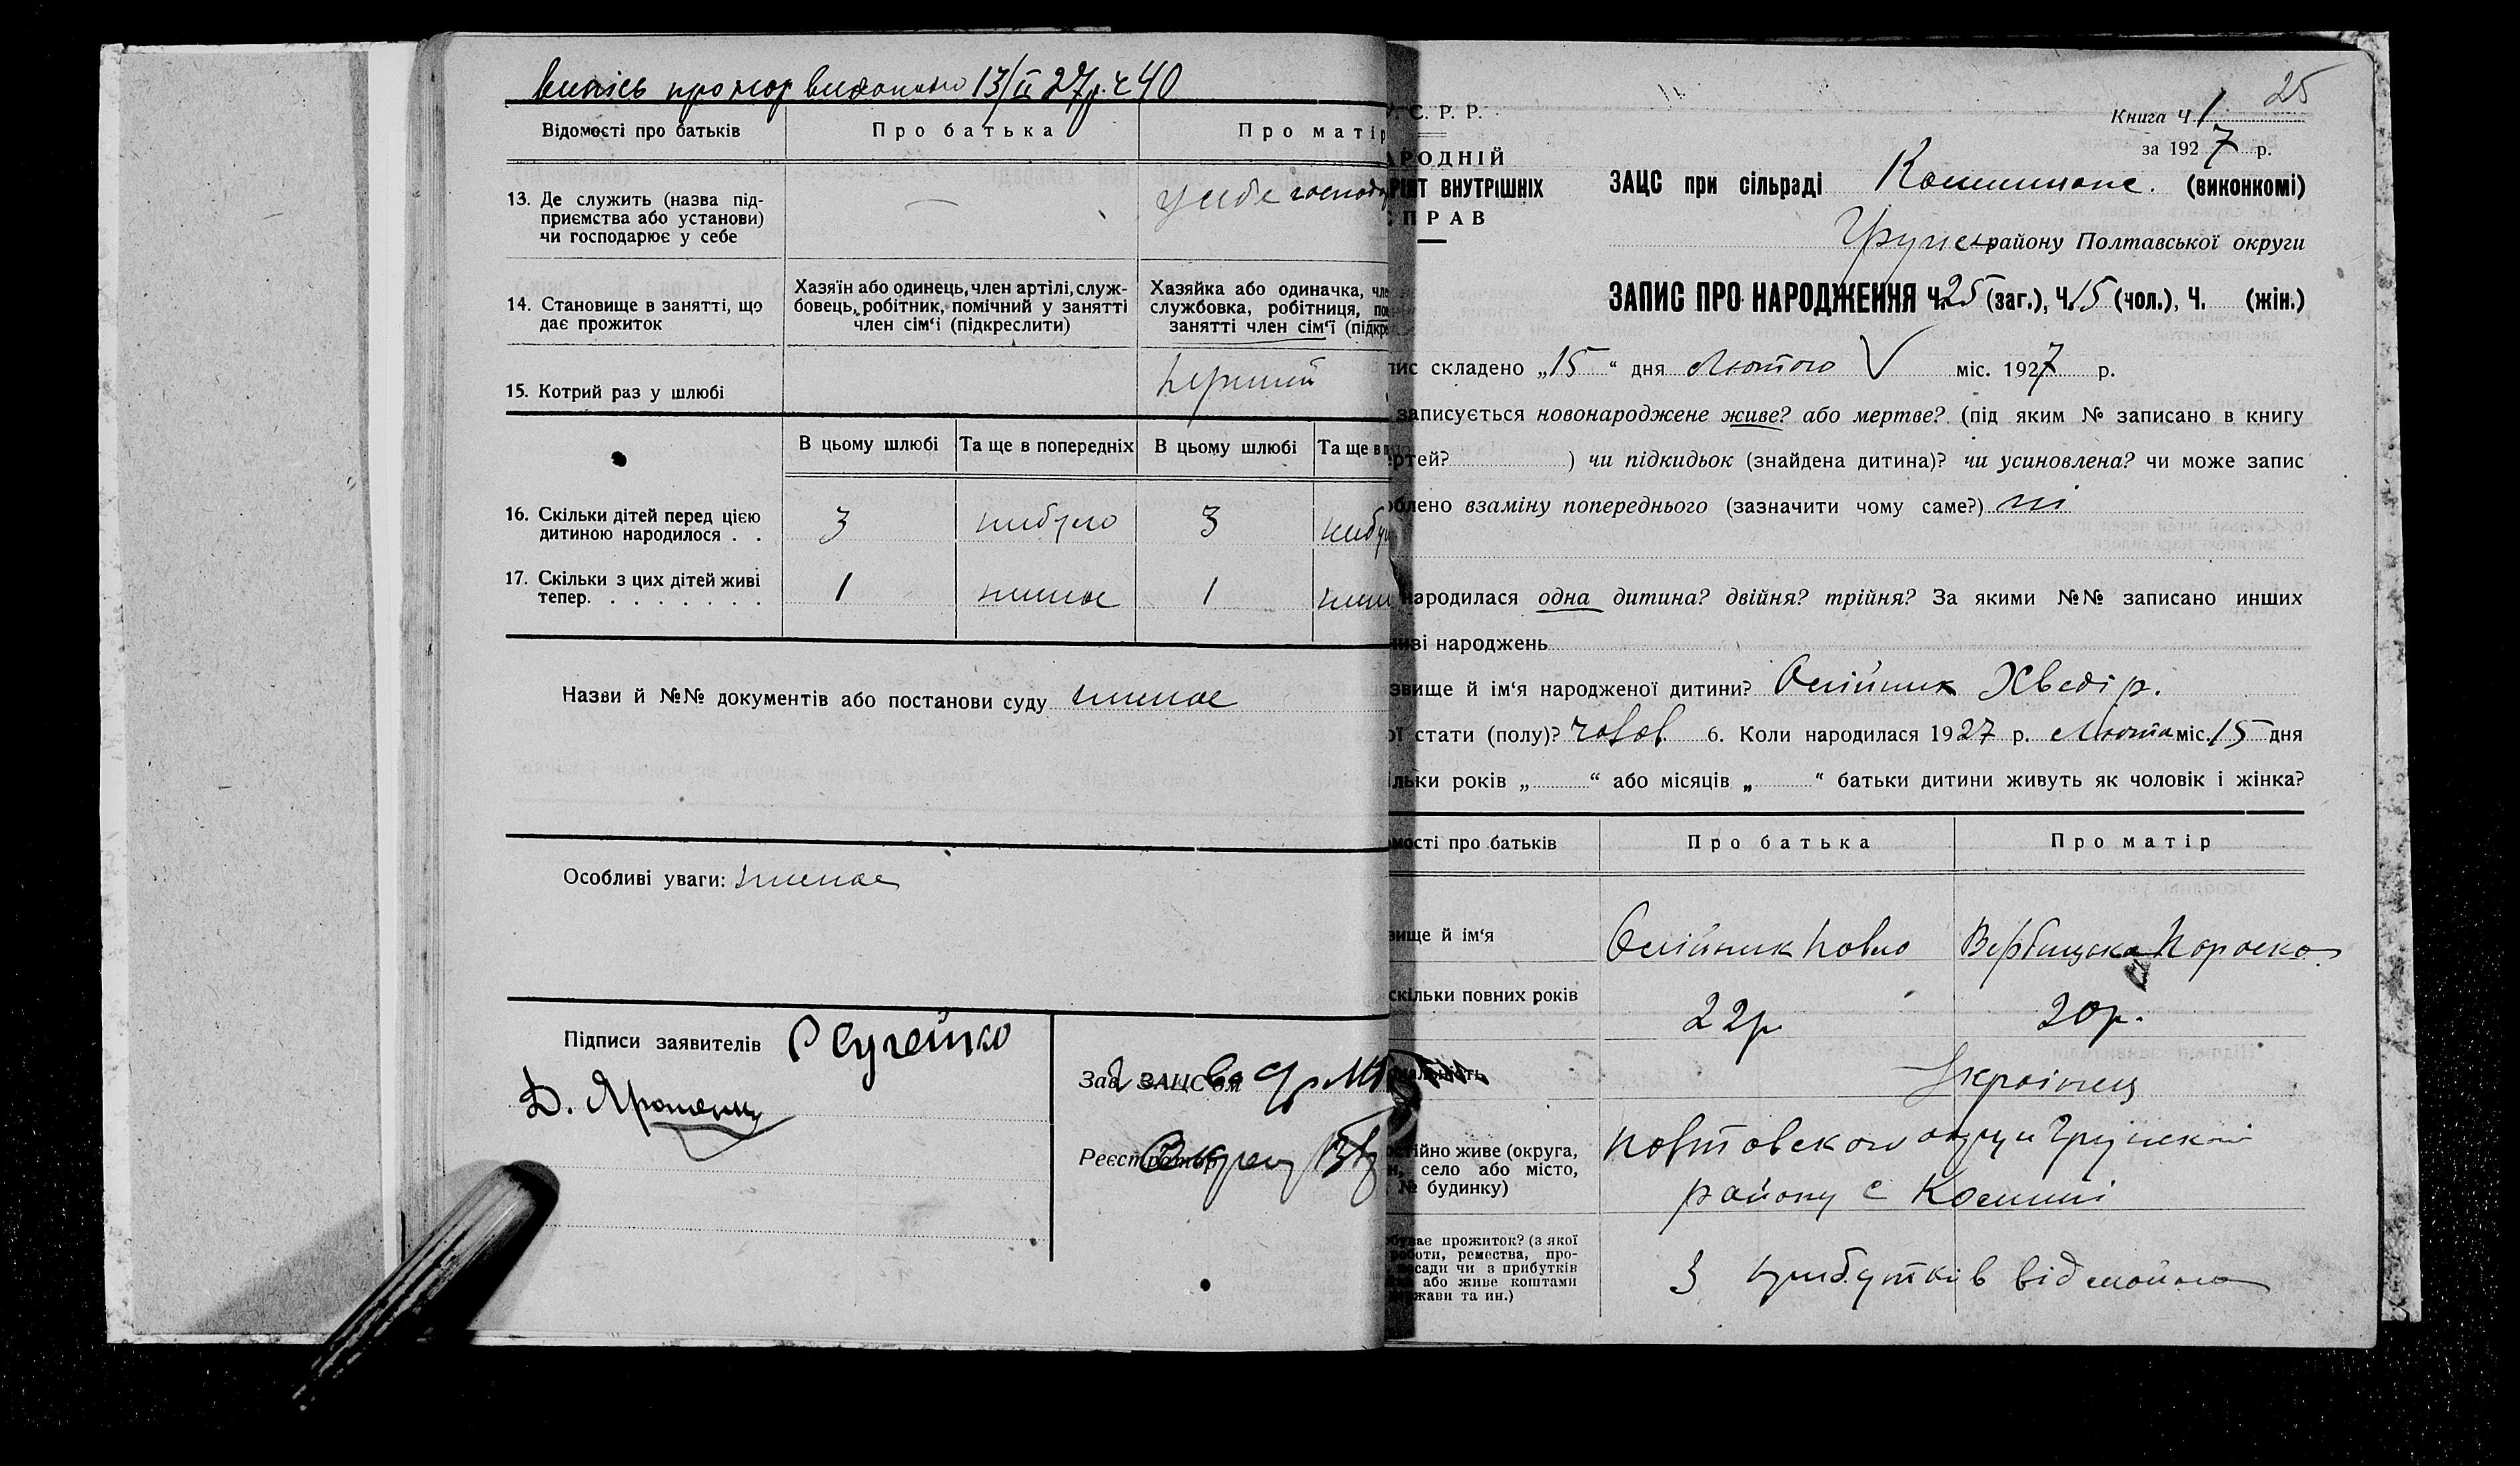 випись про нар видано 13/II 27р. ч 40
Відомості про батьків
Про батька
Про матір
13. Де служить (назва під-
приємства або установи)
чи господарює у себе
у себе господар
14. Становище в занятті, що
дає прожиток
Хазяїн або одинець, член артілі, служ-
бовець, робітник, помічний у занятті
член сім'ї (підкреслити)
Хазяйка або одиначка, чле
службовка, робітниця, по
занятті член сім'ї (підкре
15. Котрий раз у шлюбі
перший
В цьому шлюбі
Та ще в попередніх
В цьому шлюбі
Та ще в п
16. Скільки дітей перед цією
дитиною народилося . .
3
небуло
3
небу
17. Скільки з цих дітей живі
тепер. . . . . . . .
1
немає
1
нем
Назви й №№ документів або постанови суду немає
Особливі уваги: немає
Підписи заявителів
Зав ЗАЦС'ом
Реєстратор
25
Книга Ч 1
за 1927 р.
С. Р. Р.
АРОДНІЙ
РІЯТ ВНУТРІШНІХ
СПРАВ
ЗАЦС при сільраді (виконкомі)
Грунс району Полтавської округи
ЗАПИС ПРО НАРОДЖЕННЯ Ч. 25 (заг.), Ч. 15 (чол.), Ч. (жін.)
пис складено „15“ дня Лютого V міс. 1927 р.
записується новонароджене живе? або мертве? (під яким № записано в книгу
ртей? ) чи підкидьок (знайдена дитина)? чи усиновлена? чи може запис
облено взаміну попереднього (зазначити чому саме?) ні
народилася одна дитина? двійня? трійня? За якими №№ записано инших
изі народжень
звище й ім'я народженої дитини? Олійник Хведір.
ої стати (полу)? чолов. 6. Коли народилася 1927 р. Люта міс. 15 дня
ільки років „ “ або місяців „ “ батьки дитини живуть як чоловік і жінка?
мості про батьків
Про батька
Про матір
вище й ім'я
Олійник Павло
Вербицька Параска
скільки повних років
22р
20р.
Українец
стійно живе (округа,
н, село або місто,
№ будинку)
Полтавского округи Грунский
району с
буває прожиток? (з якої
роботи, ремества, про-
посади чи з прибутків
або живе коштами
ржави та ин.)
З прибутків від